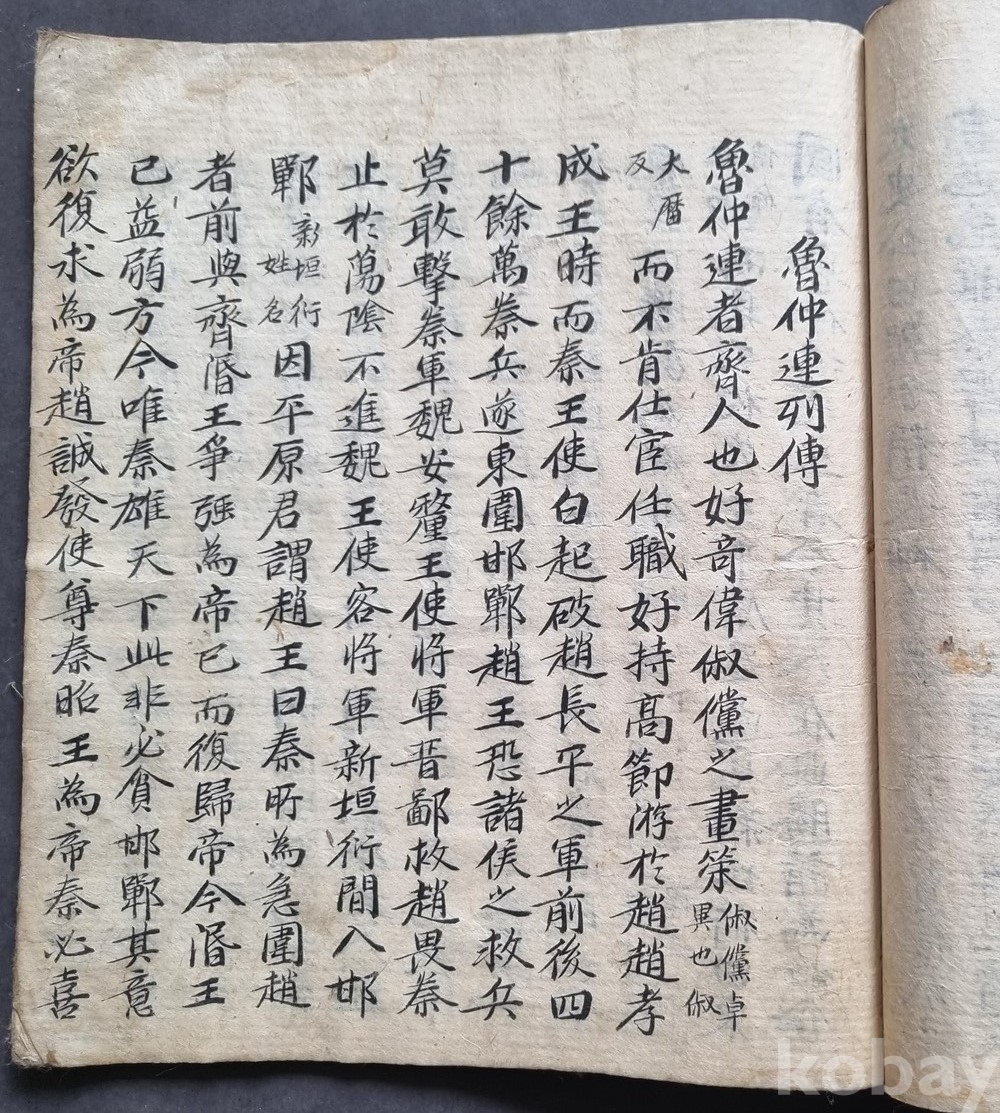 魯仲連列傳
魯仲連者齊人也好奇偉俶儻之畫策俶儻卓異也俶
大曆反而不肯仕宦任職好持高節游於趙趙孝
成王時而秦王使白起破趙長平之軍前後四
十餘萬秦兵遂東圍邯鄲趙王恐諸侯之救兵
莫敢擊秦軍魏安釐王使将軍晋鄙救趙畏秦
止於蕩陰不進魏王使客将軍新垣衍間入邯
鄲新垣衍姓名因平原君謂趙王曰秦所為急圍趙
者前與齊湣王爭强為帝已而復歸帝今湣王
已益弱方今唯秦雄天下此非必貪邯鄲其意
欲復求為帝趙誠發使尊秦昭王為帝秦必喜
kobay